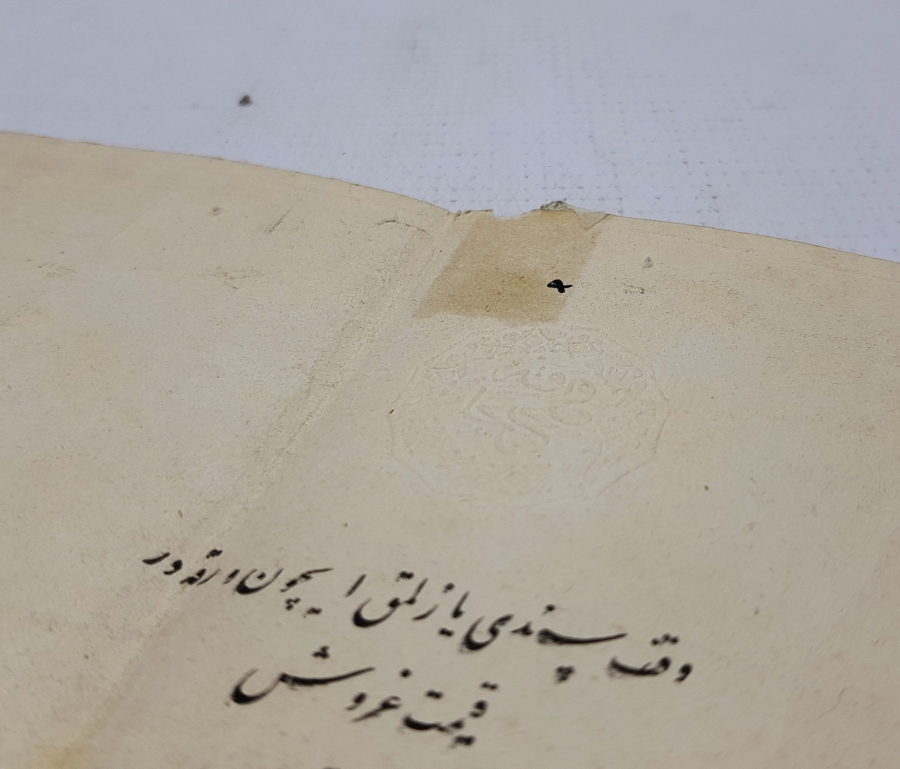 وقف سندی یازلمق ایچون ورقه در
قیمت غروش